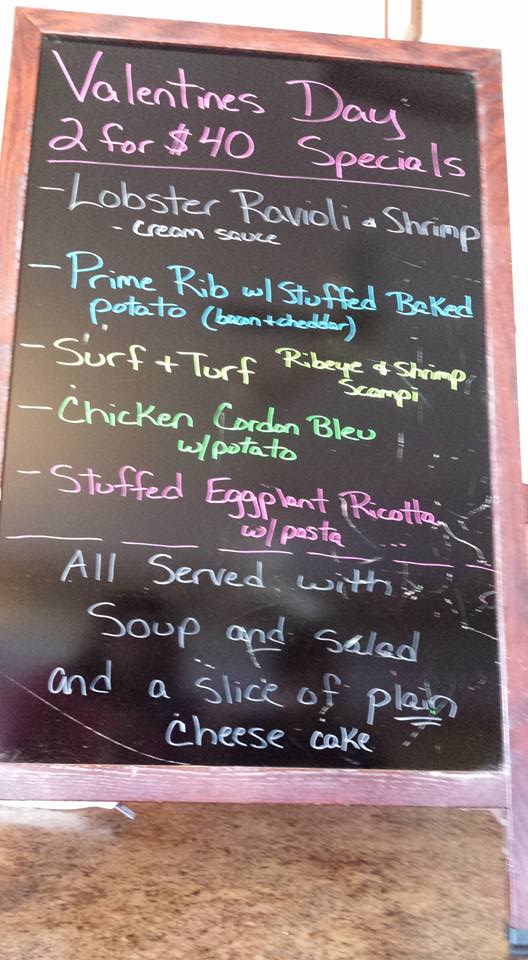 Valentines Day
2 for $40 Specials
- Lobster Ravioli & Shrimp
- cream sauce
- Prime Rib w/ Stuffed Baked
potato (bacon + cheddar)
- Surf + Turf Ribeye & Shrimp
Scampi
- Chicken Cordon Bleu
w/potato
- Stuffed Eggplant Ricotta
w/ pasta
All Served with
Soup and Salad
and a slice of plain
cheese cake